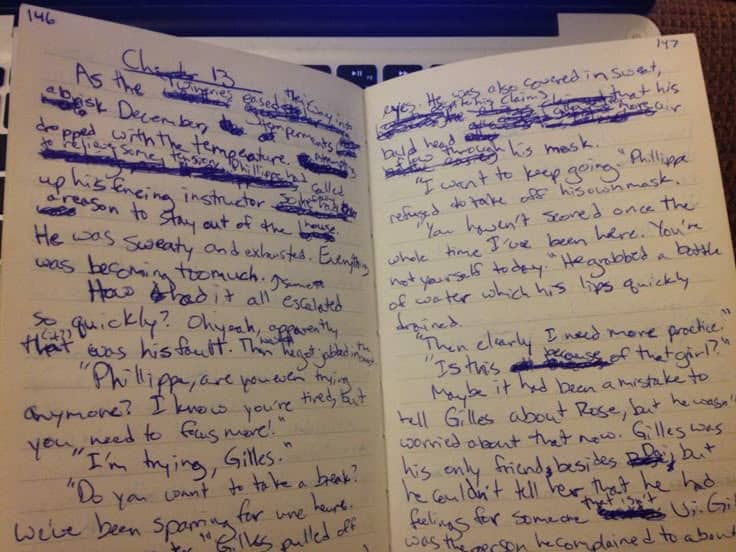 146
Chapter 13
As the wineries eased their way into
a brisk December,
dropped with the temperature.
to relieve some tension, Phillippe had called
up his fencing instructor so
a reason to stay out of the house.
He was sweaty and exhausted. Everything
was becoming too much.
How had it all escalated
so quickly? Oh yeah, apparently
that was his fault. Then he got jabbed in the
"Phillippe, are you even trying
anymore? I know you're tired, but
you need to focus more!"
"I'm trying, Gilles."
"Do you want to take a break?
We've been sparring for une heure.
" Gilles pulled off
147
eyes. He was also covered in sweat,
that his
bald head air
flow through his mask.
"I want to keep going." Phillippe
refused to take off his own mask.
"You haven't scored once the
whole time I've been here. You're
not yourself today." He grabbed a bottle
of water which his lips quickly
drained.
"Then clearly I need more practice."
"Is this because of that girl?"
Maybe it had been a mistake to
tell Gilles about Rose, but he wasn't
worried about that now. Gilles was
his only friend, besides but
he couldn't tell her that he had
feelings for someone that isn't
was the person he complained to about